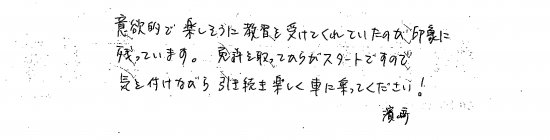 意欲的で楽しそうに教習を受けてくれていたのが印象に
残っています。免許を取ってからがスタートですので
気を付けながら引き続き楽しく車に乗ってください！
濱崎